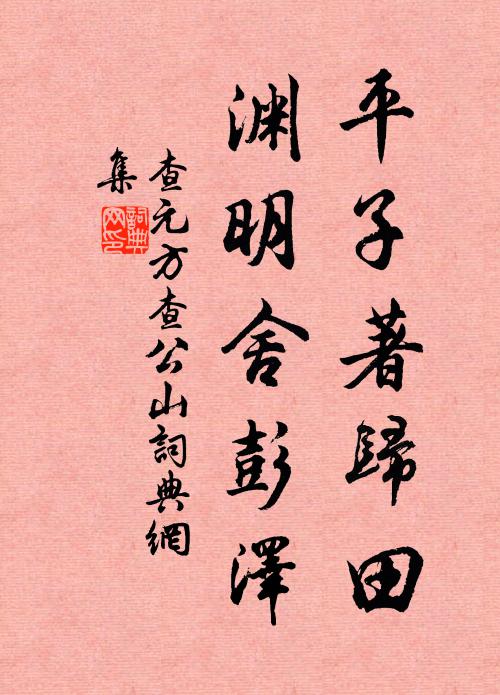 平子著歸田
淵明舍彭澤
查元方查公山詞典網
集
詞典
网印